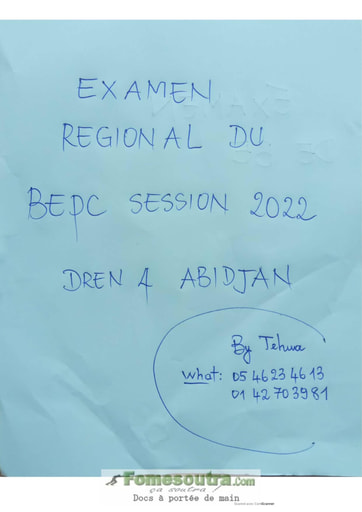 EXAMEN
REGIONAL DU
BEPC SESSION 2022
DREN 4 ABIDJAN
By Tehua
What: 05 46 23 46 13
01 42 70 39 81
Fomesoutra.com
ça soutra !
Docs à portée de main